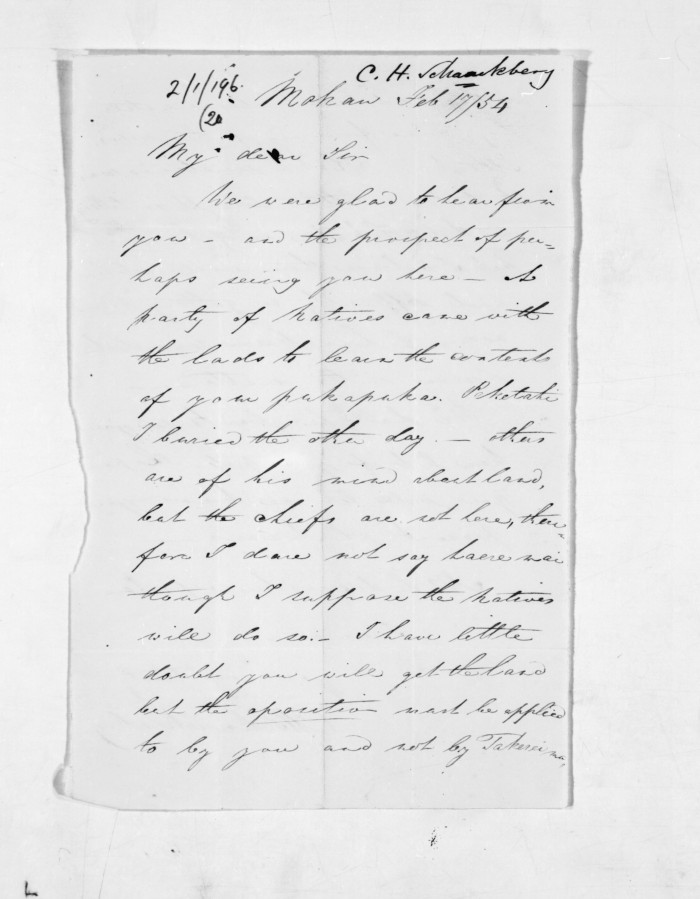 C. H. Schnackberg
2/1/196
(20
Mokau Feb 17/54
My dear Sir
We were glad to hear from
you - and the prospect of per=
haps seeing you here - A
party of Natives came with
the lads to learn the contents
of your pukapuka.
I buried the other day. - others
are of his mind about land,
but the chiefs are not here, there=
fore I dare not say haere mai
though I suppose the Natives
will do so. - I have little
doubt you will get the land
but the oposition must be applied
to by you and not by